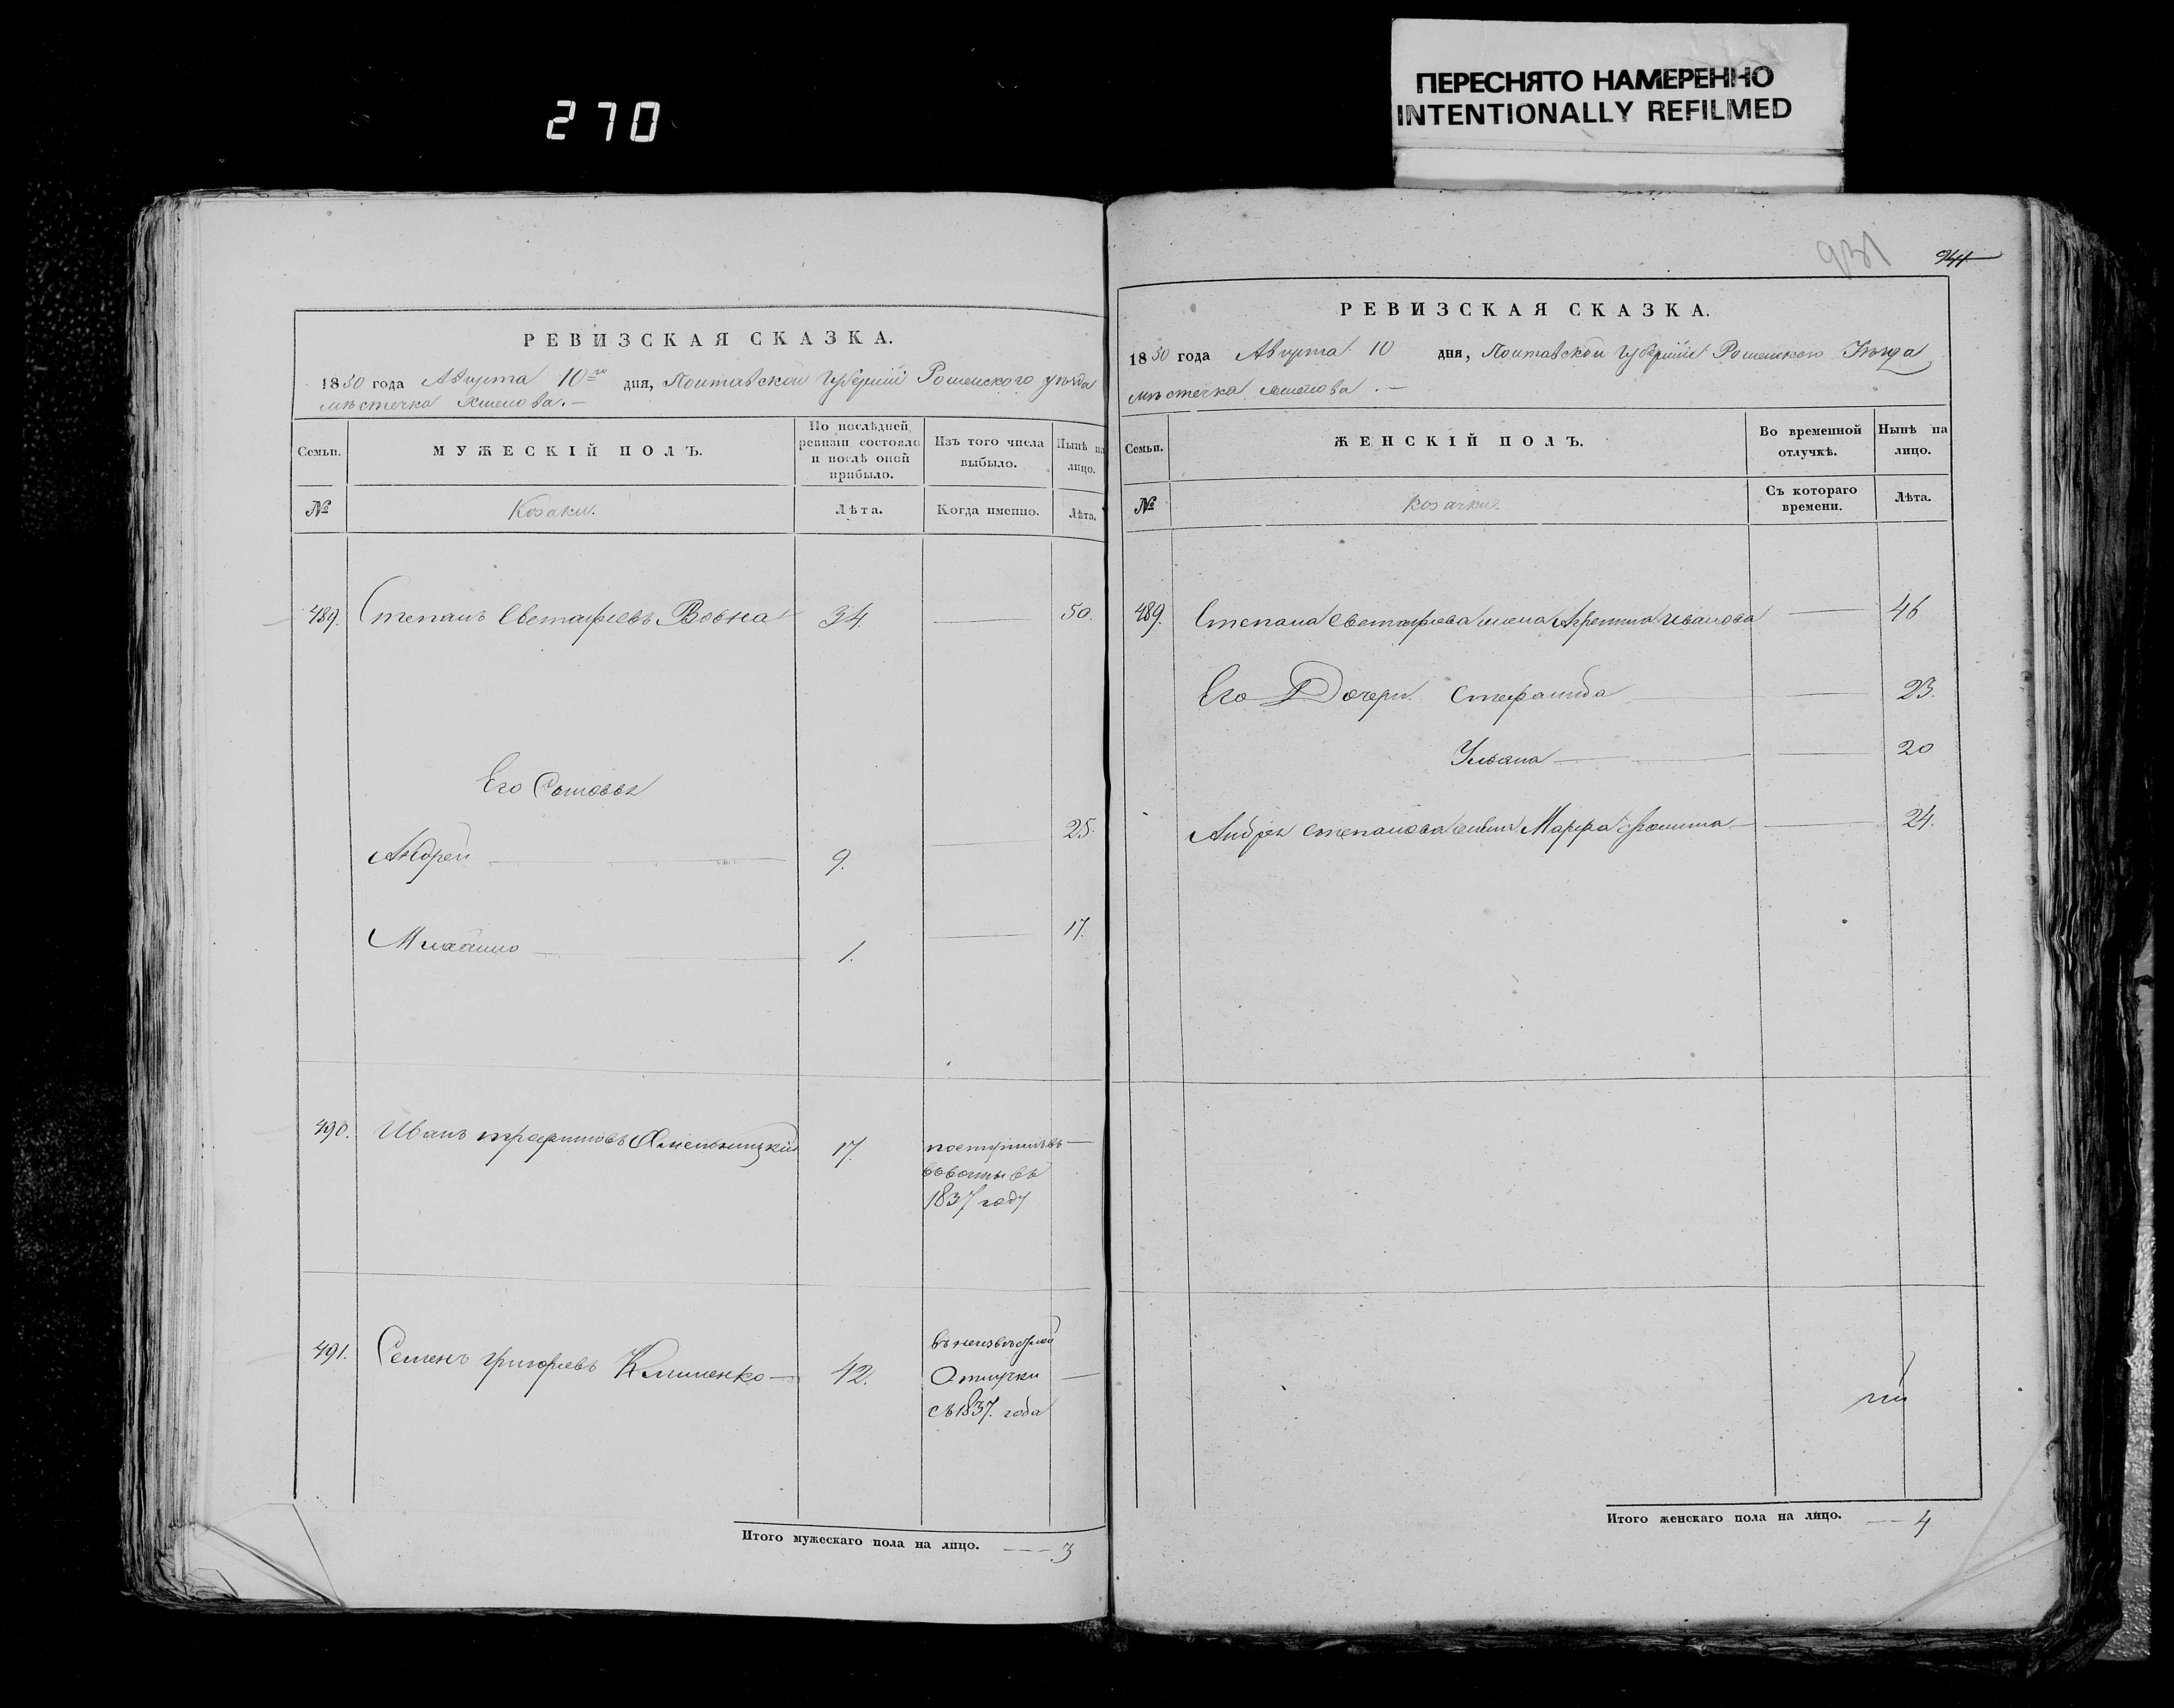 270
ПЕРЕСНЯТО НАМЕРЕННО
INTENTIONALLY REFILMED
РЕВИЗСКАЯ СКАЗКА.
1850 года Августа 10го дня, Полтавской Губерніи Роменского уезда
мѣстечка
Семьи.
МУЖЕСКІЙ ПОЛЪ.
По послѣдней ревизіи состояло и послѣ оной прибыло.
Изъ того числа выбыло.
Нынѣ на лицо.
№
Козаки.
Лѣта.
Когда именно.
Лѣта.
489. Степанъ Евстафіевъ Вовна 34. 50.
Его Сыновья
Андрей 9. 25.
Михайло 1. 17.
490. Иванъ трофимовъ 17.
1837 году
491. Семенъ григоріевъ Клименко 42. въ неизвѣстной
Отлучки
съ 1837. года
Итого мужескаго пола на лицо. 3
931
244
РЕВИЗСКАЯ СКАЗКА.
1850 года Августа 10 дня, Полтавской Губерніи Роменского Уѣзда
мѣстечка
Семьи.
ЖЕНСКІЙ ПОЛЪ.
Во временной отлучкѣ.
Нынѣ на лицо.
№
Козачки.
Съ котораго времени.
Лѣта.
489. Степана Евстафіева жена Иванова 46
Его Дочери Стефанида 23.
Ульяна 20
Андрея Степанова жена Марфа 24.
Итого женскаго пола на лицо. 4